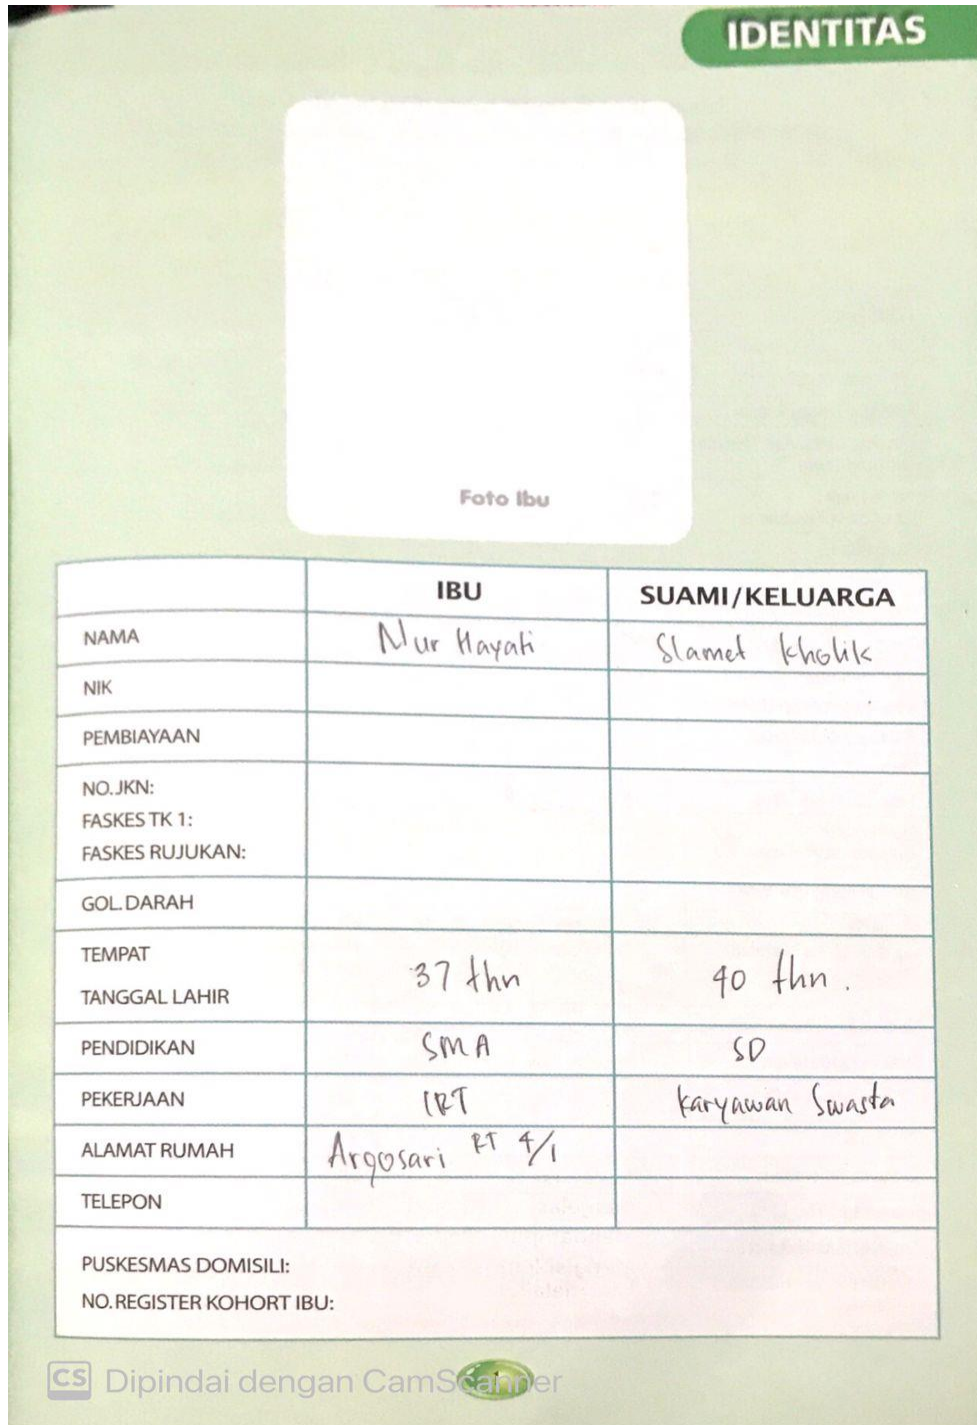 IDENTITAS
Foto Ibu
IBU SUAMI/KELUARGA
NAMA Nur Hayati Slamet Kholik
NIK
PEMBIAYAAN
NO.JKN:
FASKES TK 1:
FASKES RUJUKAN:
GOL.DARAH
TEMPAT
37 thn 40 thn.
TANGGAL LAHIR
PENDIDIKAN SMA SD
PEKERJAAN IRT Karyawan Swasta
ALAMAT RUMAH Argosari RT 4/1
TELEPON
PUSKESMAS DOMISILI:
NO.REGISTER KOHORT IBU:
1
CS Dipindai dengan CamScanner